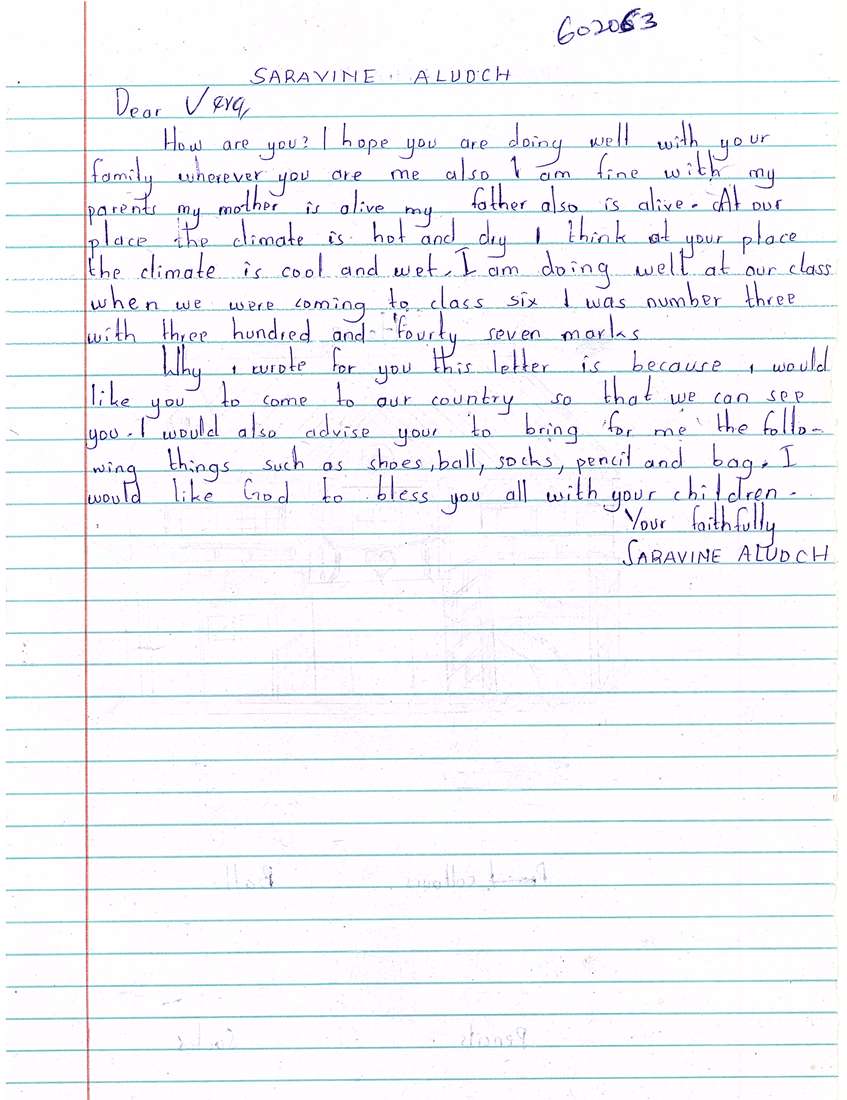 602063
SARAVINE. ALUOCH
Dear Vera,
How are you? I hope you are doing well with your
family wherever you are me also I am fine with my
parents my mother is alive my father also is alive. At our
place the climate is hot and dry I think at your place
the climate is cool and wet. I am doing well at our class
when we were coming to class six I was number three
with three hundred and fourty seven marks
Why I wrote for you this letter is because I would
like you to come to our country so that we can see
you. I would also advise your to bring for me the follo-
wing things such as shoes, ball, socks, pencil and bag. I
would like God to bless you all with your children.
Your faithfully
SARAVINE ALUOCH